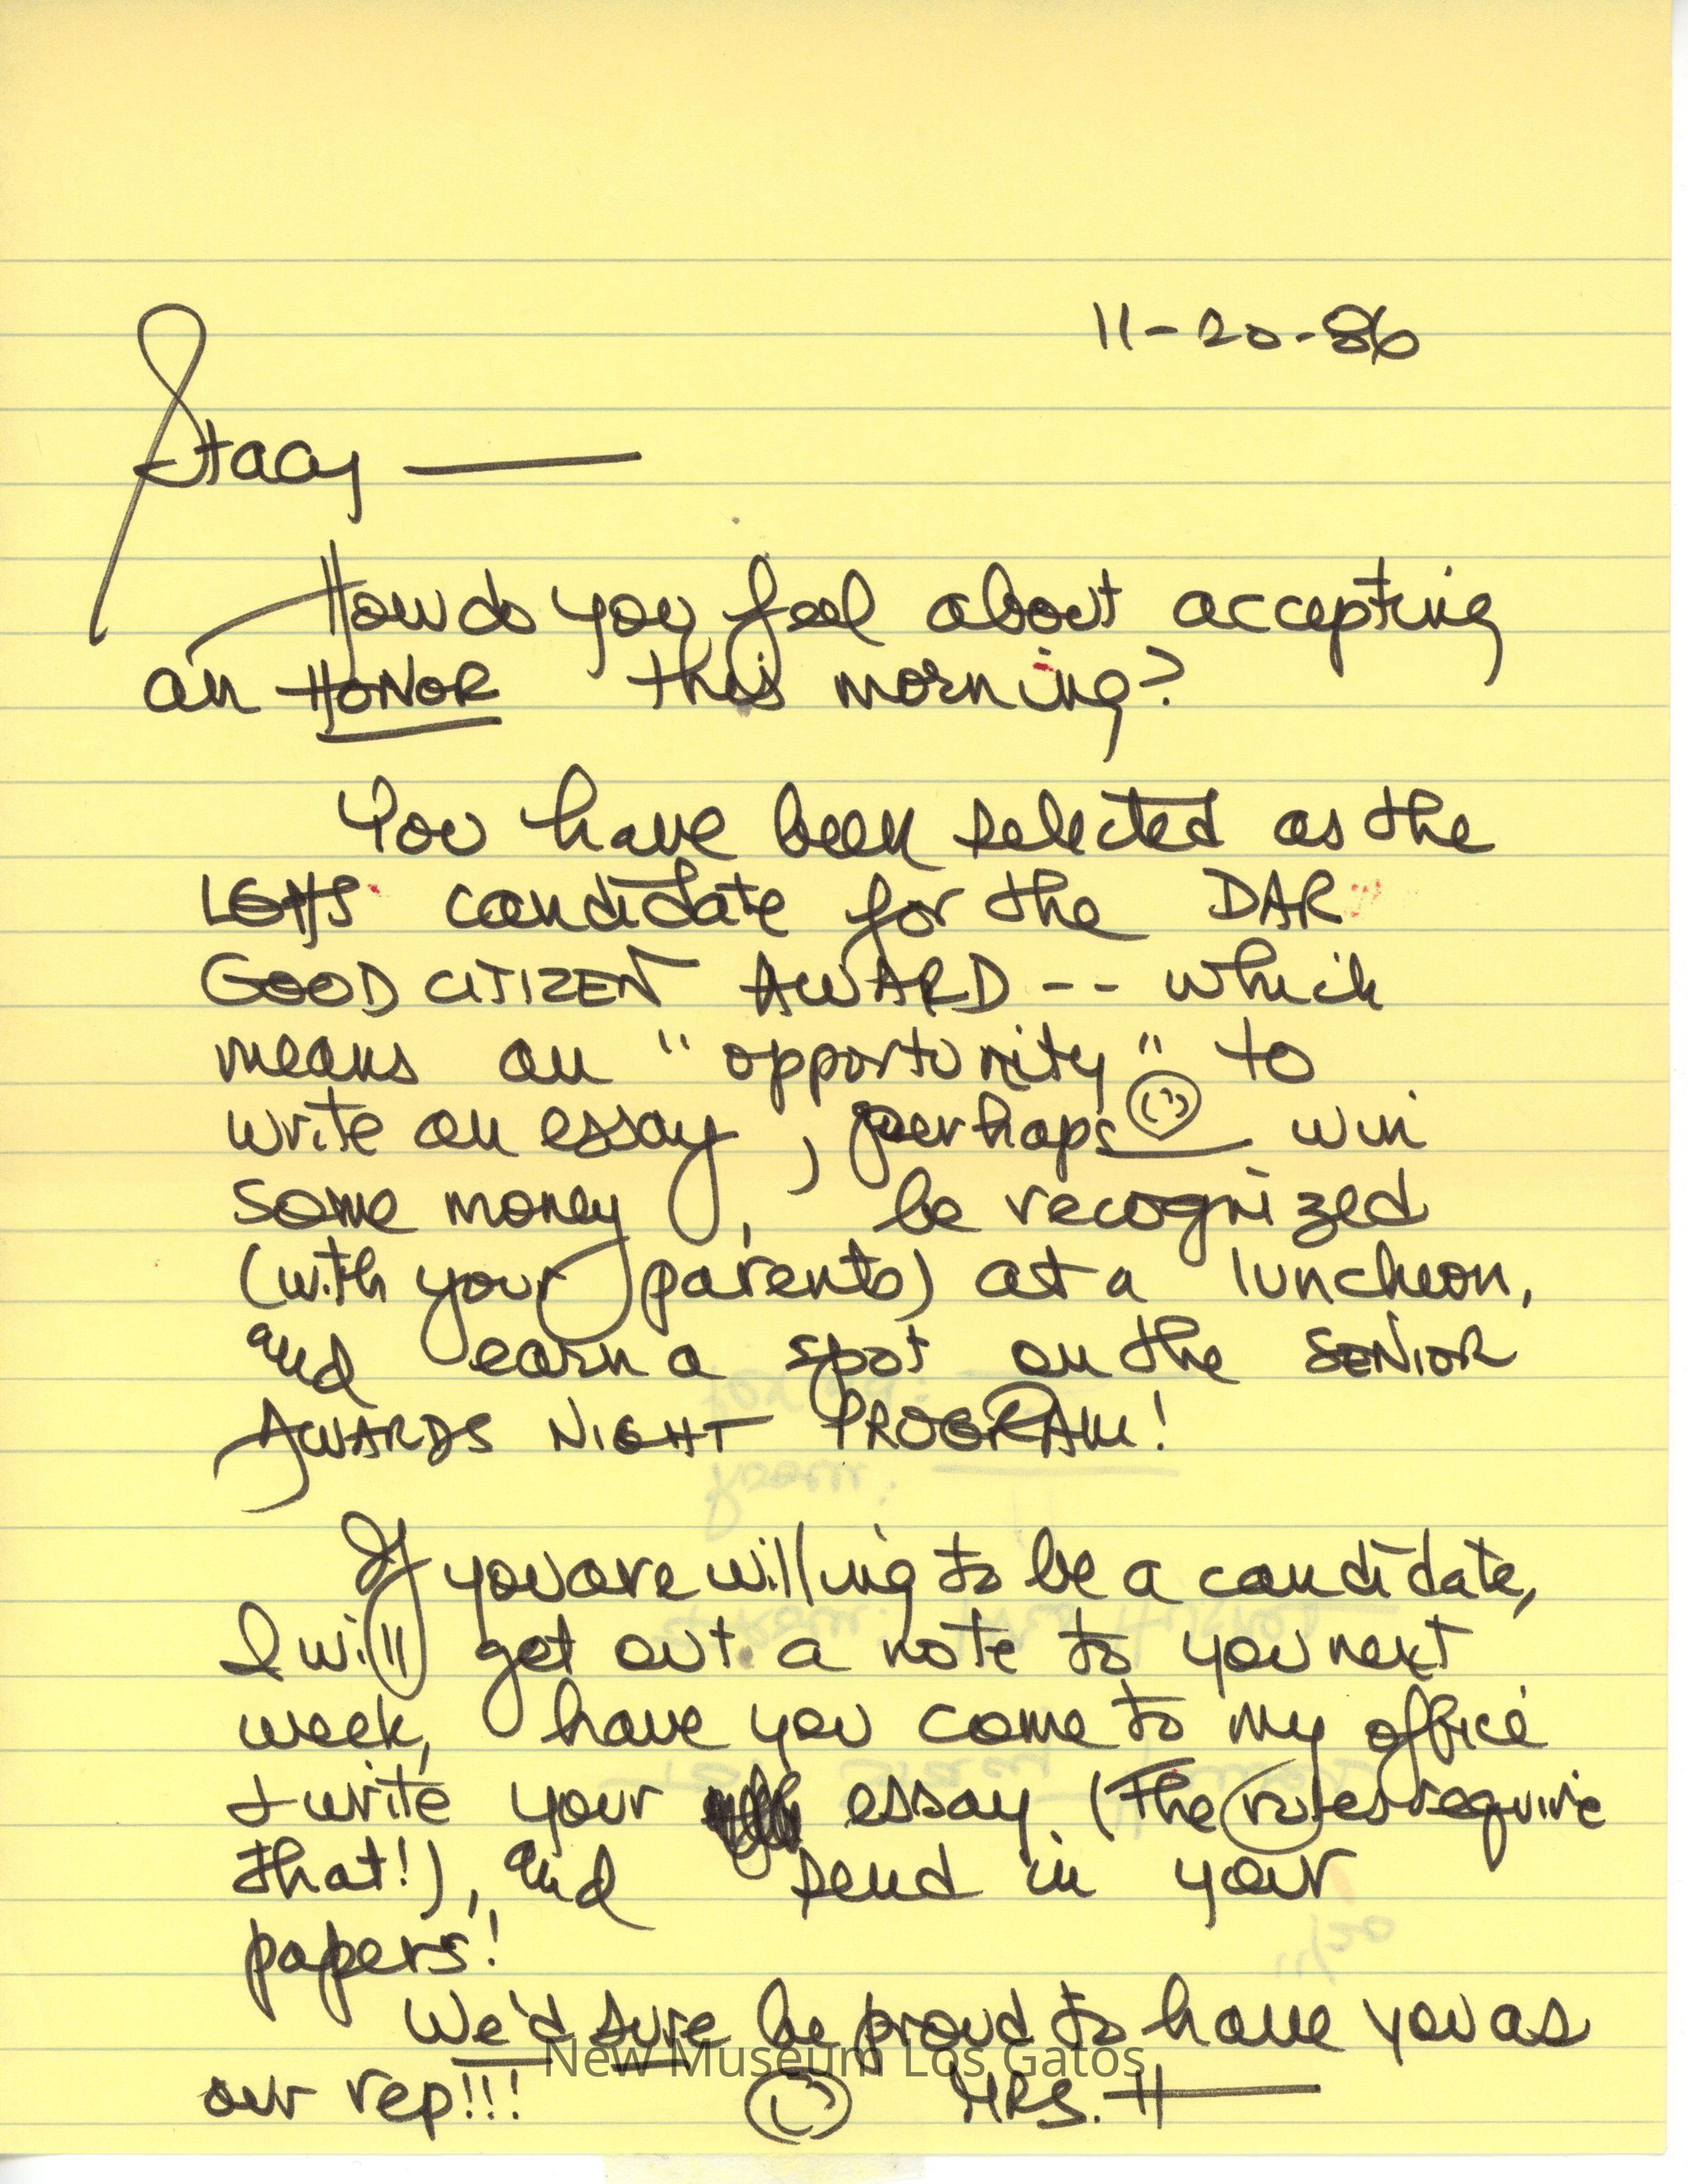 11-20-86
Stacy —
How do you feel about accepting
an HONOR this morning?
You have been selected as the
LGHS candidate for the DAR
GOOD CITIZEN AWARD -- which
means an "opportunity" to
write an essay, perhaps win
some money, be recognized
(with your parents) at a luncheon,
and earn a spot on the SENIOR
AWARDS NIGHT PROGRAM!
If you are willing to be a candidate,
I will get out a note to you next
week, have you come to my office
& write your essay (The rules require
that!), and send in your
papers!
We'd sure be proud to have you as
New Museum Los Gatos
our rep!!! MRS. H—